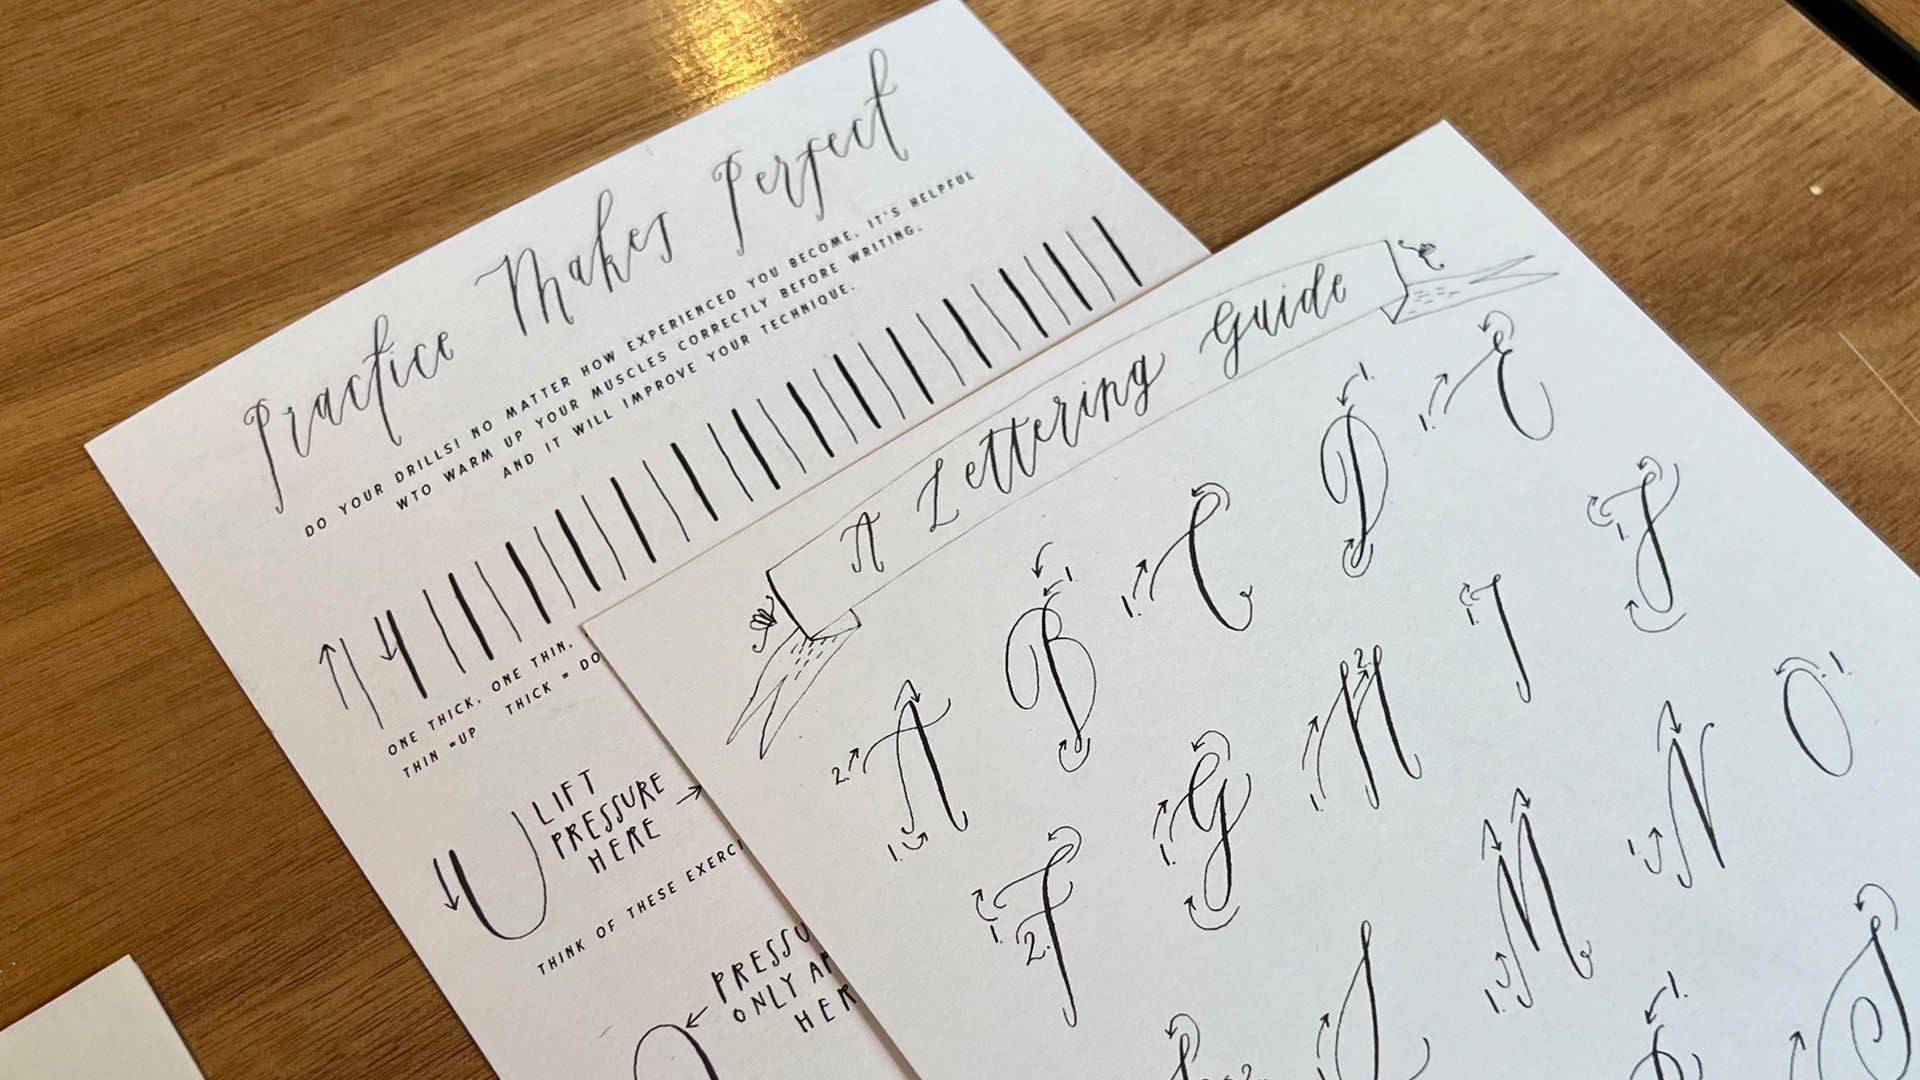 Practice Makes Perfect
DO YOUR DRILLS! NO MATTER HOW EXPERIENCED YOU BECOME, IT'S HELPFUL
WTO WARM UP YOUR MUSCLES CORRECTLY BEFORE WRITING,
AND IT WILL IMPROVE YOUR TECHNIQUE.
ONE THICK, ONE THIN,
THIN =UP THICK = DO
LIFT
PRESSURE
HERE
THINK OF THESE EXERCI
PRESSU
ONLY AP
HER
A Lettering Guide
A B C D E
F G H I J
M N O